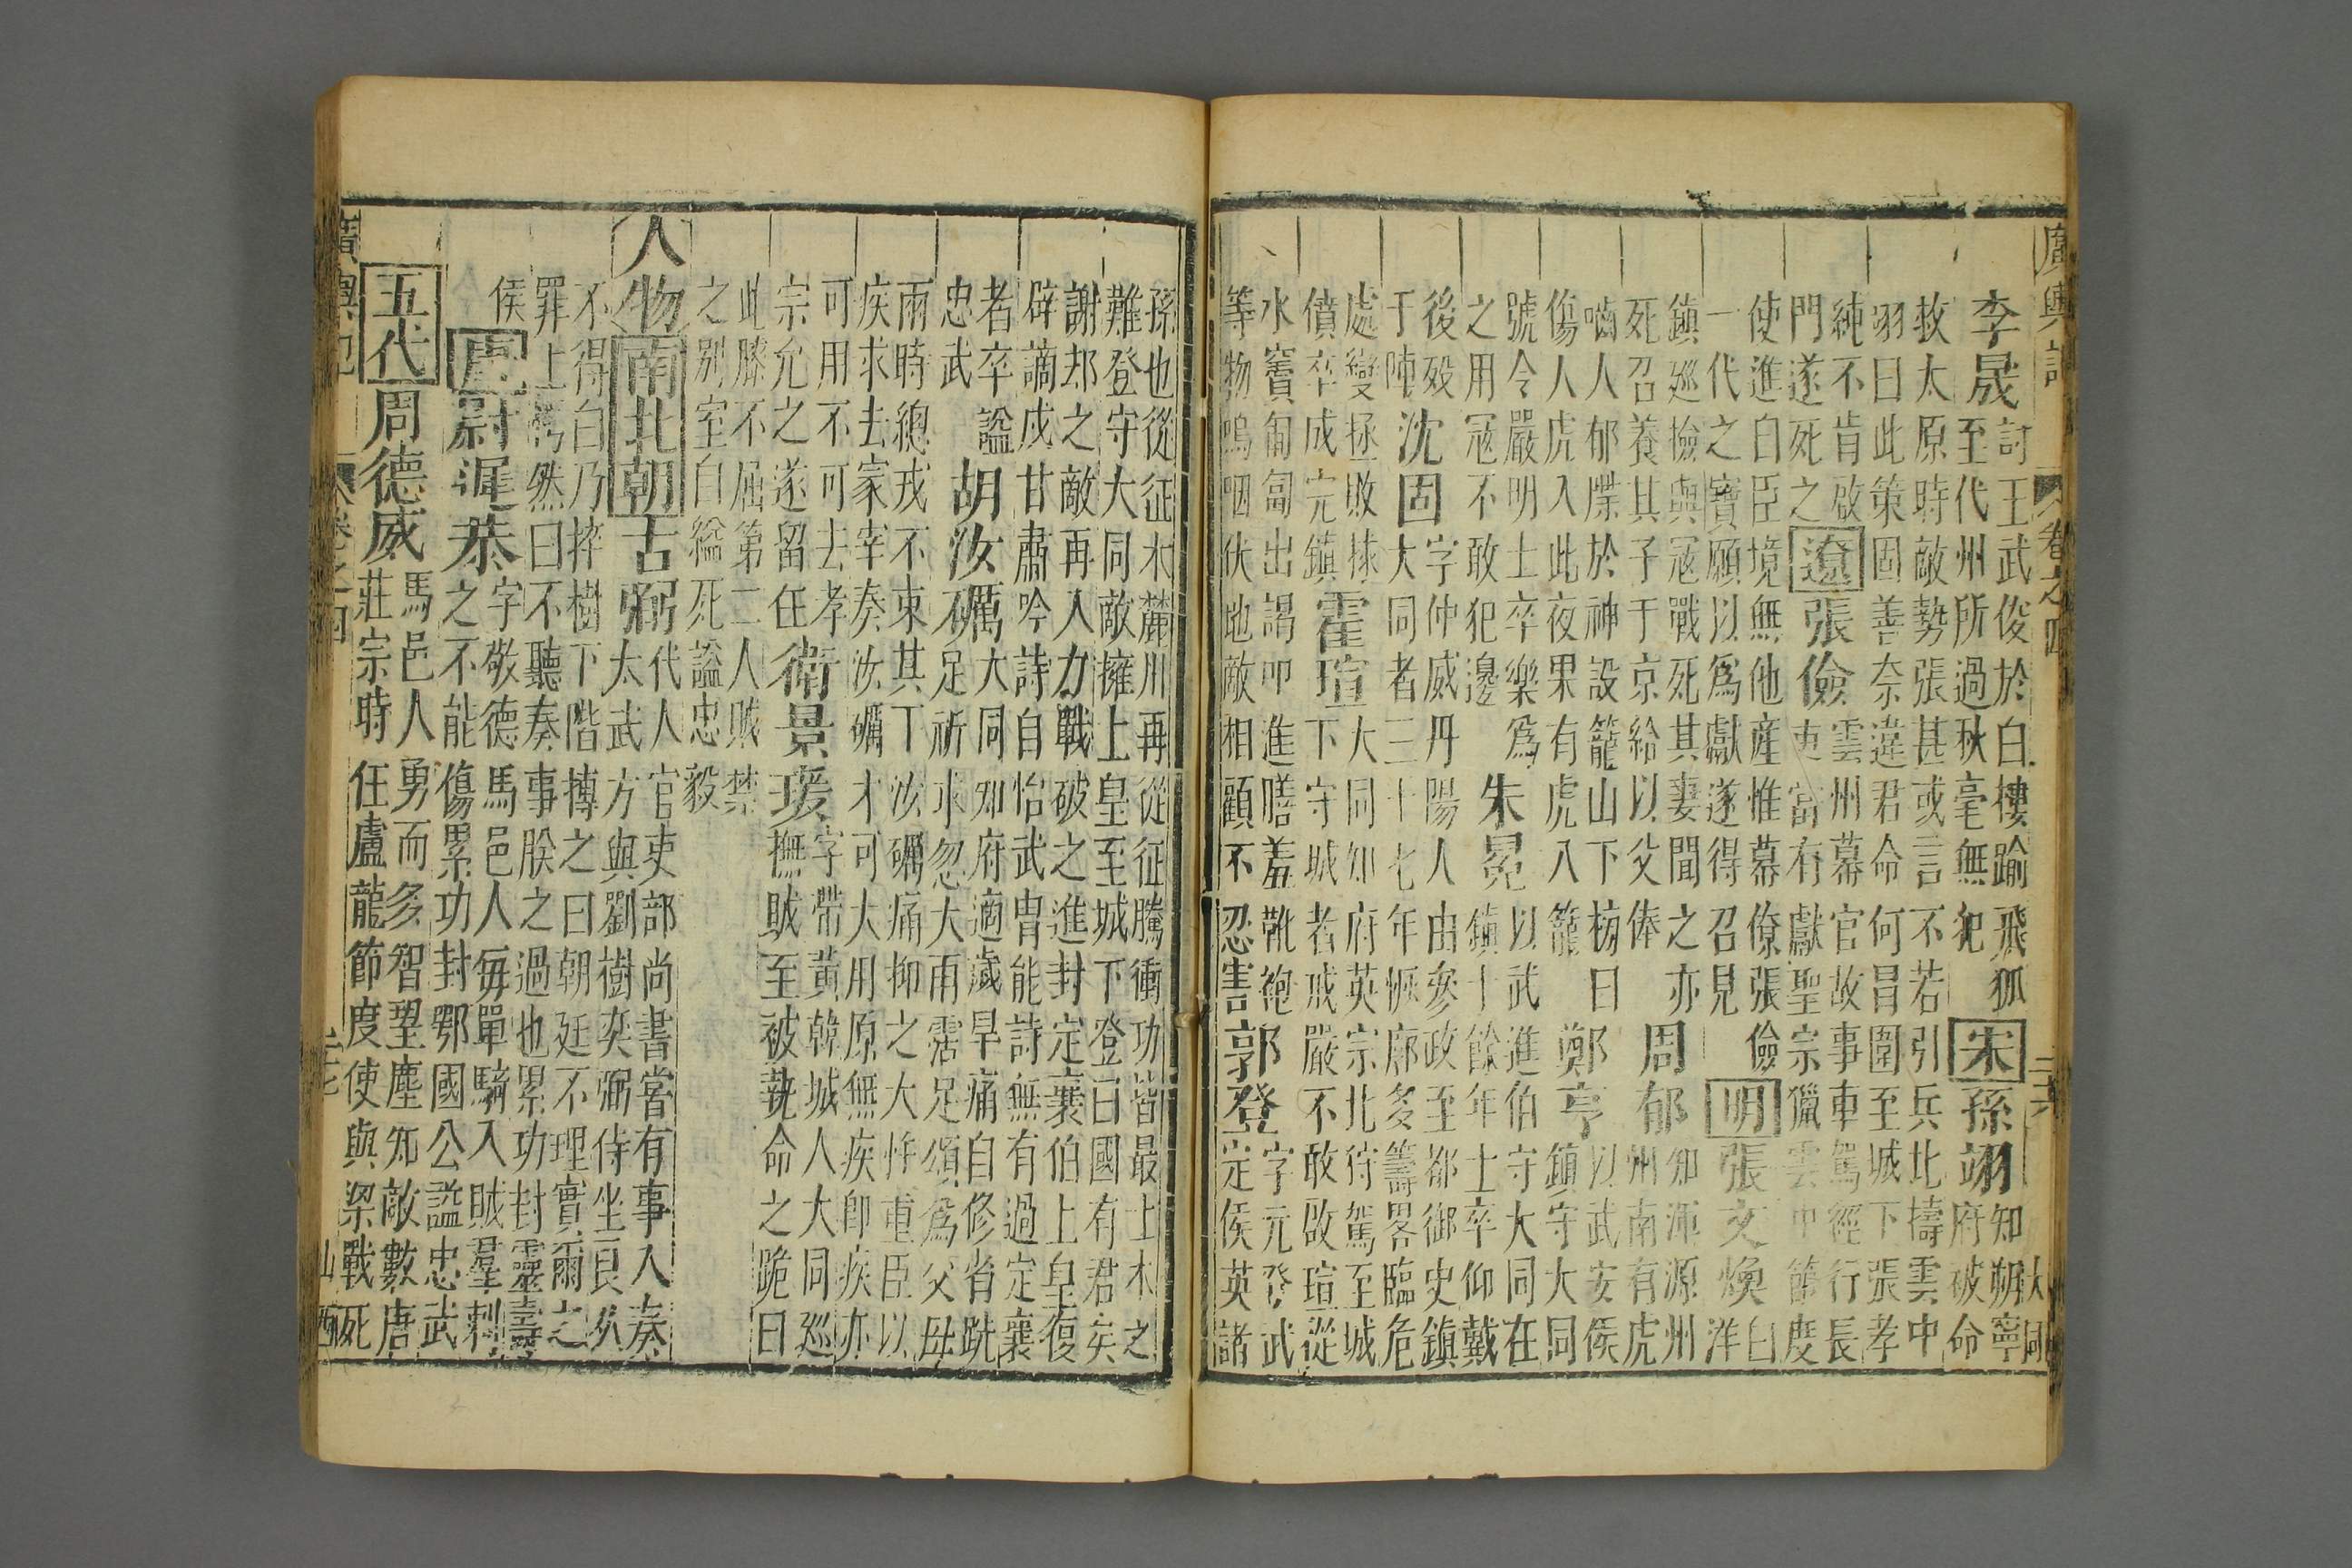 廣輿記 卷之四 二十六 大同
李晟 討王武俊於白樓踰飛狐
至代州所過秋毫無犯 宋 孫翊 知朔寧
府破命
救太原時敵勢張甚或言不若引兵北擣雲中
翊曰此策固善奈違君命何昌圍至城下張孝
純不肯啟
門遂死之 遼 張儉 雲州幕官故事車駕經行長
吏當有獻聖宗獵雲中節度
使進曰臣境無他產惟幕僚張儉
一代之寶願以爲獻遂得召見 明 張文煥 白
洋
鎮巡檢與寇戰死其妻聞之亦
死召養其子于京給以父俸 周郁 知渾源州
州南有虎
嚙人郁牒於神設籠山下榜曰
傷人虎入此夜果有虎入籠 鄭亨 以武安侯
鎮守大同
號令嚴明士卒樂爲
之用寇不敢犯邊 朱冕 以武進伯守大同在
鎮十餘年士卒仰戴
後歿
于陣 沈固 字仲威丹陽人由參政至都御史鎮
大同者三十七年恢廓多籌畧臨危
處變拯敗捄
僨卒成完鎮 霍瑄 大同知府英宗北狩駕至城
下守城者戒嚴不敢啟瑄從
水竇匍匐出謁叩進膳羞靴袍
等物嗚咽伏地敵相顧不忍害 郭登 字元登武
定侯英諸
孫也從征木麓川再從征騰衝功皆最土木之
難登守大同敵擁上皇至城下登曰國有君矣
謝却之敵再入力戰破之進封定襄伯上皇復
辟謫戍甘肅吟詩自怡武冑能詩無有過定襄
者卒諡
忠武 胡汝礪 大同知府適歲旱痛自修省跣
足祈求忽大雨霑足頌爲父母
雨時總戎不束其丁汝礪痛抑之大忤重臣以
疾求去家宰奏汝礪才可大用原無疾卽疾亦
可用不可去孝
宗允之遂留任 衛景瑗 字帶黃韓城人大同巡
撫賊至被執命之跪曰
此膝不屈第二人賊禁
之別室自縊死諡忠毅
人物 南北朝 古弼 代人官吏部尚書嘗有事入奏
太武方與劉樹奕弼侍坐良久
不得白乃捽樹下階搏之曰朝廷不理實爾之
罪上愕然曰不聽奏事朕之過也累功封靈壽
侯 唐 尉遲恭 字敬德馬邑人每單騎入賊羣刺
之不能傷累功封鄂國公諡忠武
五代 周德威 馬邑人勇而多智望塵知敵數唐
莊宗時任盧龍節度使與梁戰死
廣輿記 卷之四 二十七 山西